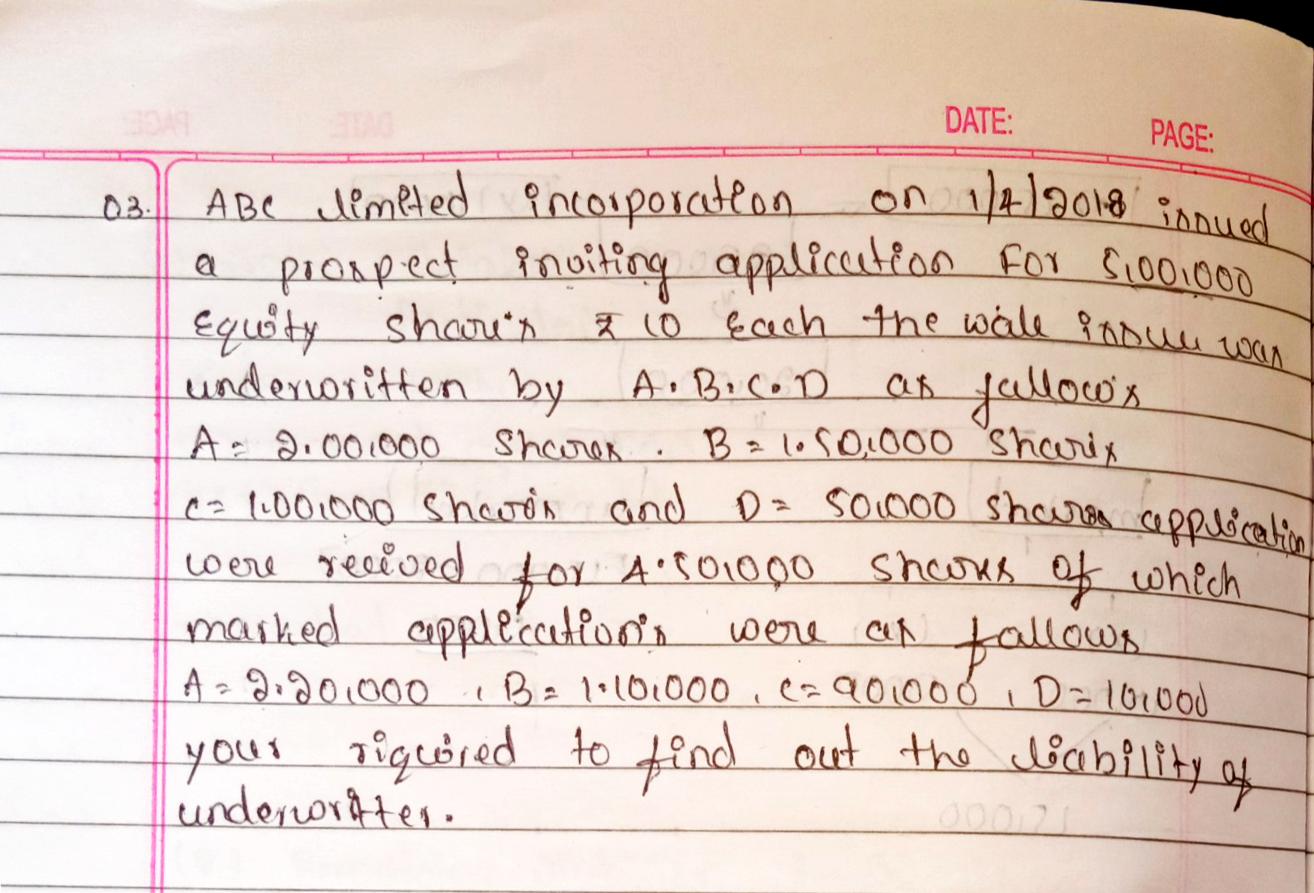 DATE: PAGE:
03. ABC limited incorporation on 1/4/2018 issued
a prospect inviting application For 5,00,000
Equity shar's ₹ 10 Each the wale issue was
underwritten by A. B. C. D as fallows
A = 2,00,000 Shares . B = 1.50,000 Sharis
C = 1,00,000 Sharis and D = 50,000 Shares application
were recived for 4.50,000 Shares of which
marked application's were as fallows
A = 2.20,000 , B = 1.10,000 , C = 90,000 , D = 10,000
your riquired to find out the liability of
underwritter.